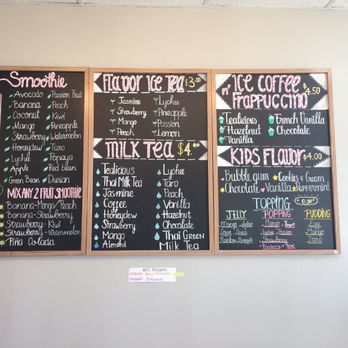 Smoothie
Avocado Passion Fruit
Banana Peach
Coconut Kiwi
Mango Pineapple
Strawberry Watermelon
Honeydew Taro
Lychee Papaya
Apple Red bean
Green Bean Durian
Mix any 2 Fruit Smoothie
Banana-Mango/Peach
Strawberry-Banana
Strawberry-Kiwi
Strawberry-Watermelon
Piña Colada
Flavor Ice Tea $3.00
Jasmine Lychee
Strawberry Pineapple
Mango Passion
Peach Lemon
Milk Tea $4.00
Tealicious Lychee
Thai Milk Tea Taro
Jasmine Peach
Coffee Vanilla
Honeydew Hazelnut
Strawberry Chocolate
Mango Thai Green
Almond Milk Tea
Ice Coffee
n' Frappuccino $4.50
Tealicious French Vanilla
Hazelnut Chocolate
Vanilla
Kids Flavor $4.00
Bubble gum Cookies & Cream
Chocolate Vanilla Peppermint
Topping
Jelly Popping Pudding
Mango Mango Egg
Lychee Taro
Strawberry